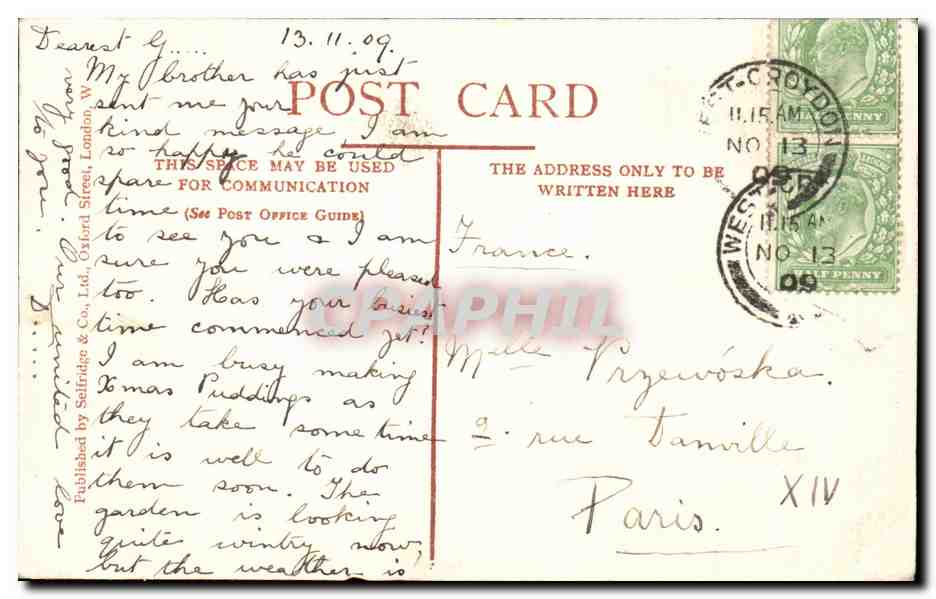 Dearest G.....
13.11.09.
My brother has just
sent me your
kind message, I am
so happy he could
spare
time
to see you & I am
sure you were pleased
too. Has your busiest
time commenced yet?
I am busy making
Xmas Puddings as
they take some time
it is well to do
them soon. The
garden is looking
quite wintry now,
but the weather is
very good. Our united love
to you. D.....
POST CARD
THIS SPACE MAY BE USED
FOR COMMUNICATION
(See POST OFFICE GUIDE)
THE ADDRESS ONLY TO BE
WRITTEN HERE
Published by Selfridge & Co., Ltd., Oxford Street, London, W.
France.
Melle Przewóska.
9. rue Danville
Paris.
XIV
WEST-CROYDON
11.15 AM
NO 13
09
HALF PENNY
WEST
11.15 AM
NO 13
09
HALF PENNY
CPAPHIL